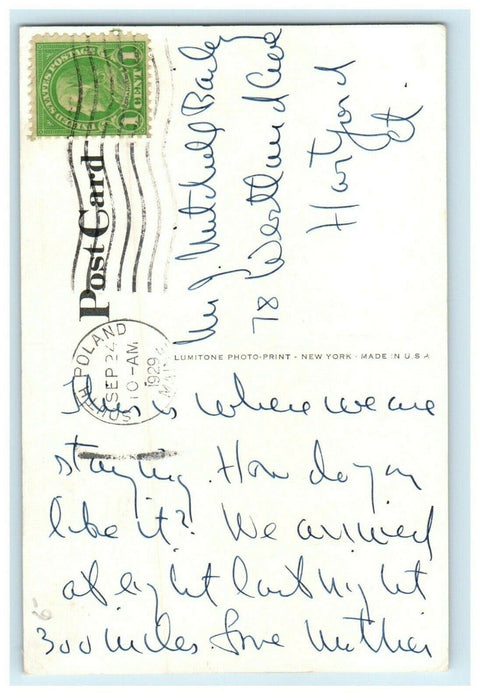 UNITED STATES POSTAGE
1 CENT 1
Post Card
POLAND
SEP 24
10-AM
1929
Mr J. Mitchell Bailey
78 Westland Ave
Hartford
Ct.
LUMITONE PHOTO-PRINT - NEW YORK - MADE IN U.S.A
This is where we are
staying. How do you
like it? We arrived
at eight last night
300 miles. Love Mother
6